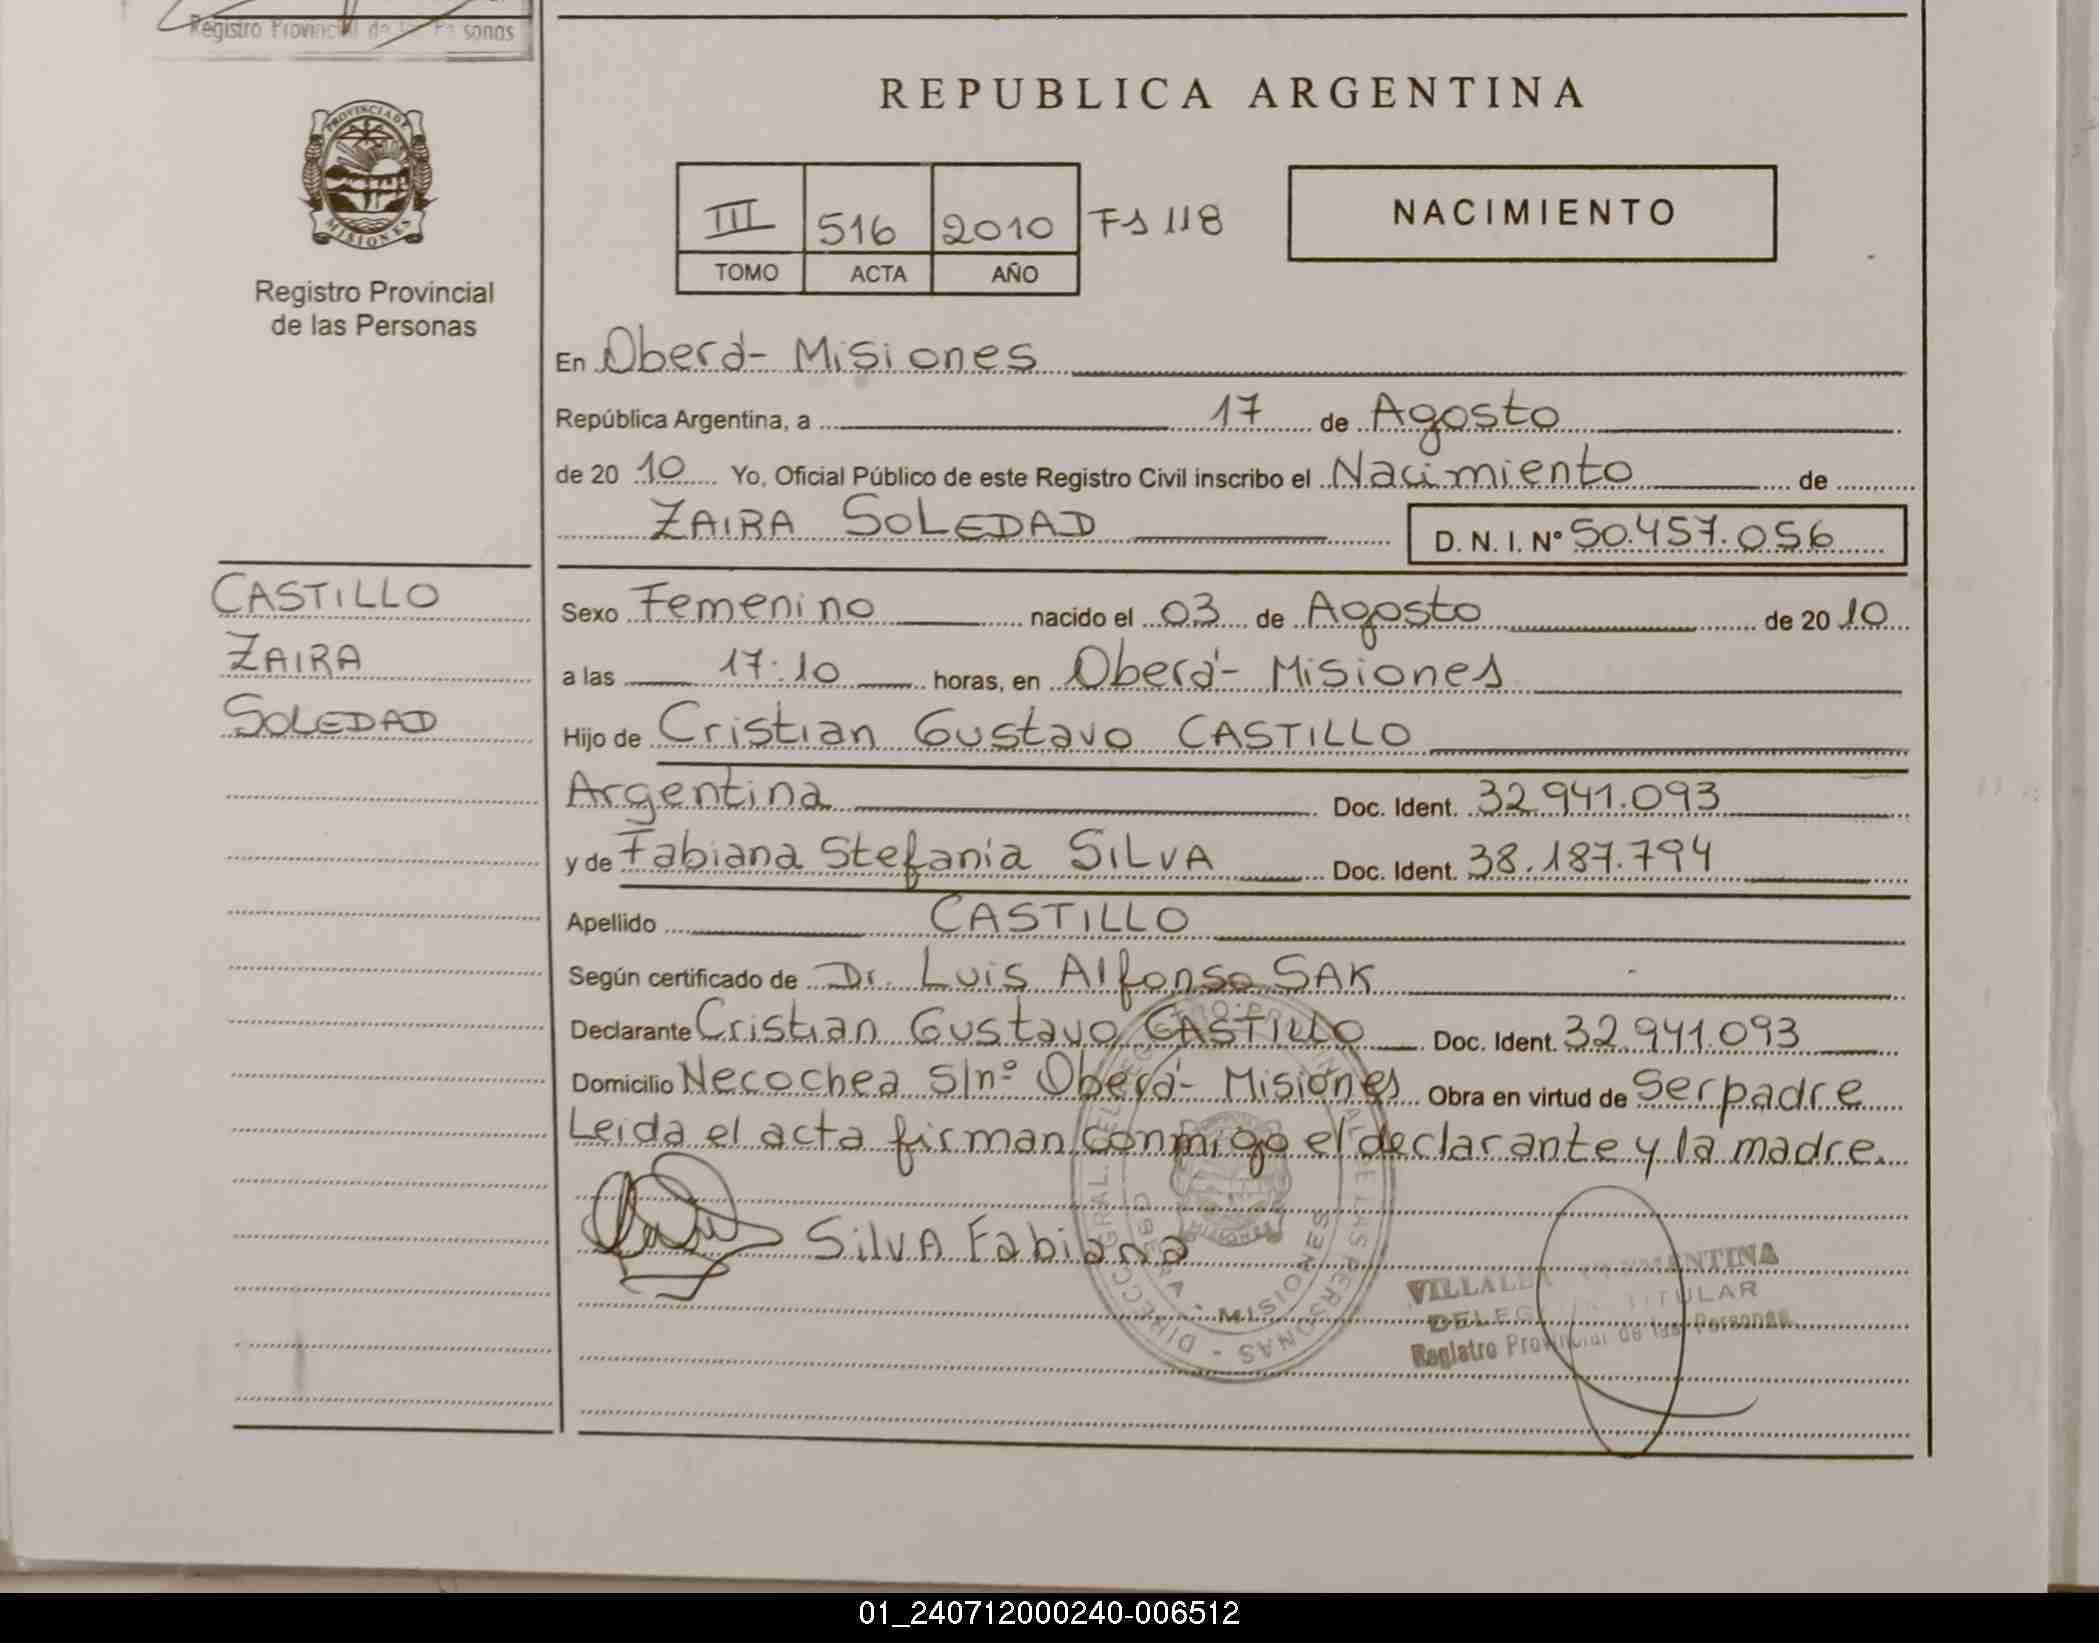 Registro Provincial de las Personas
REPUBLICA ARGENTINA
PROVINCIA DE
MISIONES
Registro Provincial
de las Personas
III 516 2010 Fs 118
TOMO ACTA AÑO
NACIMIENTO
En Oberá- Misiones
República Argentina, a 17 de Agosto
de 20 10 Yo, Oficial Público de este Registro Civil inscribo el Nacimiento de
ZAIRA SOLEDAD D. N. I. N° 50.457.056
CASTILLO
ZAIRA
SOLEDAD
Sexo Femenino nacido el 03 de Agosto de 20 10
a las 17:10 horas, en Oberá- Misiones
Hijo de Cristian Gustavo CASTILLO
Argentina Doc. Ident. 32.941.093
y de Fabiana Stefania SILVA Doc. Ident. 38.187.794
Apellido CASTILLO
Según certificado de Dr. Luis Alfonso SAK
Declarante Cristian Gustavo CASTILLO Doc. Ident. 32.941.093
Domicilio Necochea s/nº Oberá- Misiones Obra en virtud de Ser padre
Leida el acta firman conmigo el declarante y la madre.
SilVA Fabiana
MISIONES
TITULAR
Registro Provincial de las Personas
01_240712000240-006512